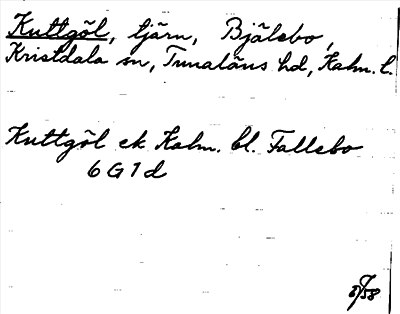 Kuttgöl, tjärn, Bjälebo,
Kristdala sn, Tunaläns hd, Kalm. l.
Kuttgöl ek Kalm. bl. Fallebo
6 G 1 d